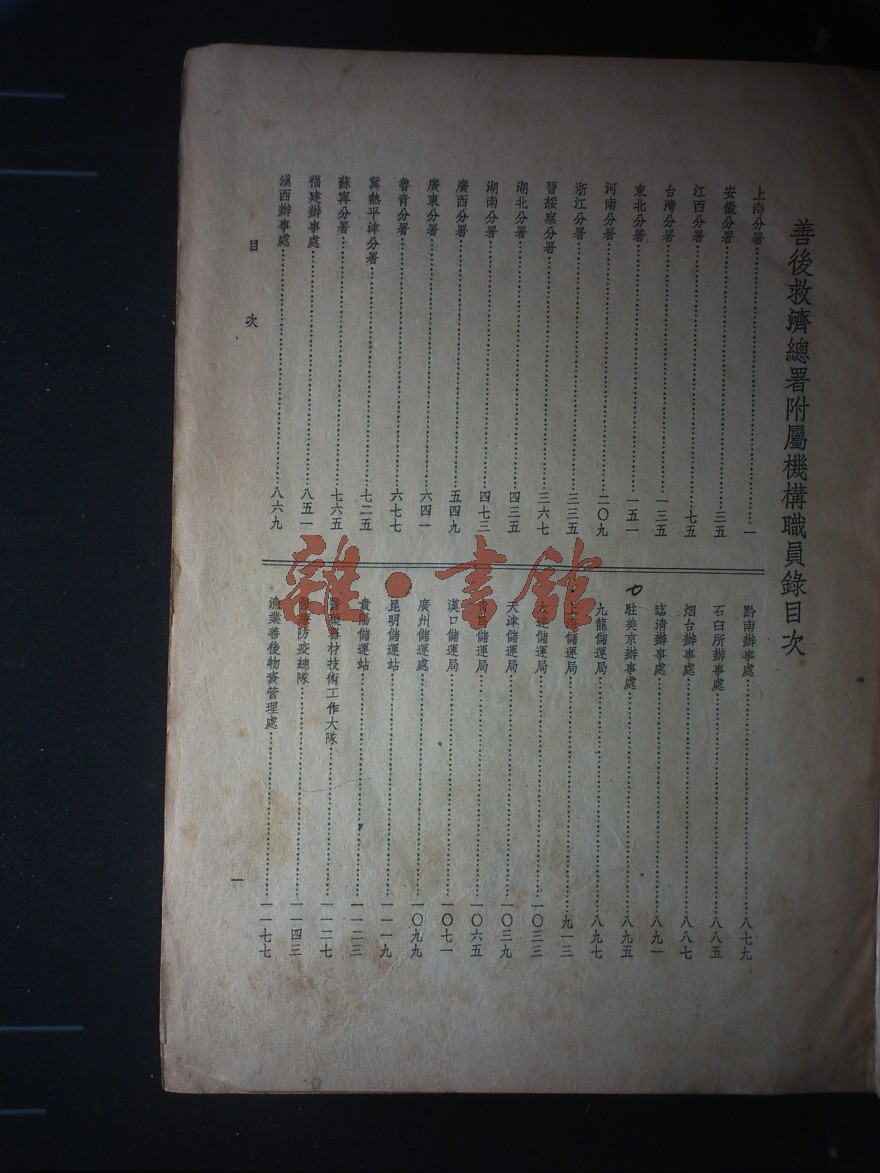 善後救濟總署附屬機構職員錄目次
上海分署…一
安徽分署…三五
江西分署…七五
台灣分署…一三五
東北分署…一五一
河南分署…二〇九
浙江分署…三三五
晉綏察分署…三六七
湖北分署…四三五
湖南分署…四七三
廣西分署…五四九
廣東分署…六四一
魯青分署…六七七
冀熱平津分署…七二五
蘇寧分署…七六五
福建辦事處…八五一
滇西辦事處…八六九
黔南辦事處…八七九
石臼所辦事處…八八五
烟台辦事處…八八七
臨清辦事處…八九一
駐美京辦事處…八九五
九龍儲運局…八九七
儲運局…九一三
儲運局…一〇三三
天津儲運局…一〇三九
儲運局…一〇六五
漢口儲運局…一〇七一
廣州儲運處…一〇九九
昆明儲運站…一一一九
貴陽儲運站…一一二三
器材技術工作大隊…一一二七
防疫總隊…一一四三
漁業善後物資管理處…一一七七
目次
一
雜·書館